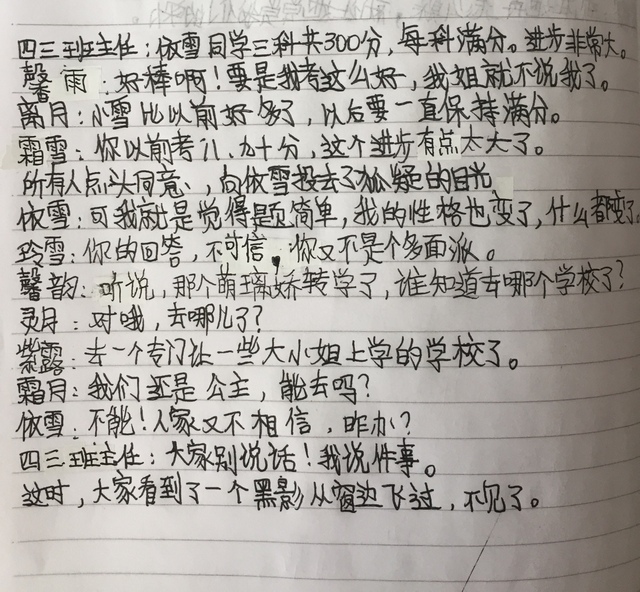 四三班主任：依雪同学三科共300分，每科满分。进步非常大。
馨雨：好棒啊！要是我考这么好，我姐就不说我了。
离月：小雪比以前好多了，以后要一直保持满分。
霜雪：你以前考八、九十分，这个进步有点太大了。
所有人点头同意、，向依雪投去了狐疑的目光
依雪：可我就是觉得题简单，我的性格也变了，什么都变了
玲雪：你的回答，不可信，你又不是个多面派。
馨韵：听说，那个萌璃娇转学了，谁知道去哪个学校了？
灵月：对哦，去哪儿了？
紫露：去一个专门让一些大小姐上学的学校了。
霜月：我们还是公主，能去吗？
依雪：不能！人家又不相信，咋办？
四三班主任：大家别说话！我说件事。
这时，大家看到了一个黑影从窗边飞过，不见了。